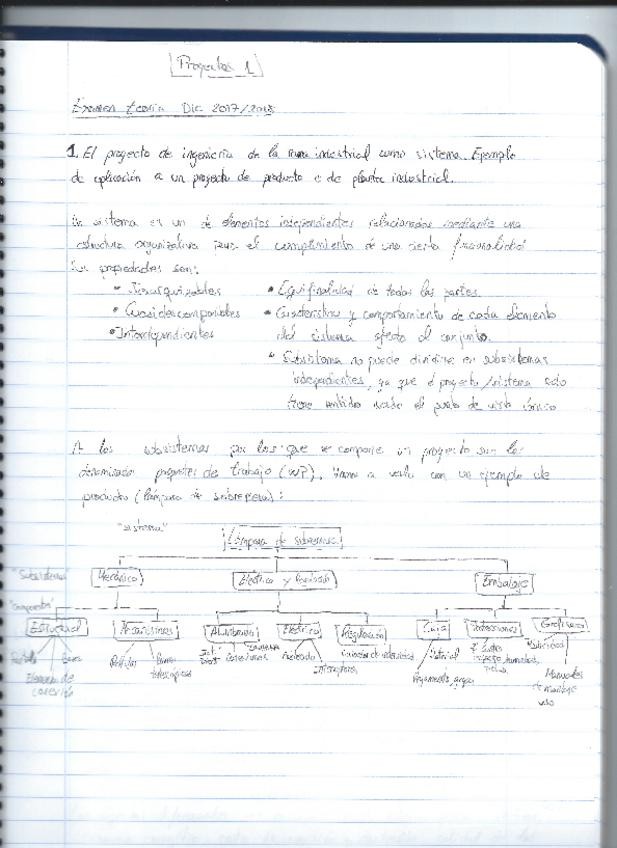 Proyectos 1
Examen teoria Dic 2017/2018
1. El proyecto de ingeniería de la rama industrial como sistema. Ejemplo
de aplicación a un proyecto de producto o de planta industrial.
Un sistema es un de elementos independientes relacionados mediante una
estructura organizativa para el cumplimiento de una cierta funcionalidad
Sus propiedades son:
• Jerarquizables
• Cuasidescomponibles
• Interdependientes
• Equifinalidad de todas las partes.
• Característica y comportamiento de cada elemento
del sistema afecta al conjunto.
• Subsistema no puede dividirse en subsistemas
independientes, ya que el proyecto/sistema solo
tiene sentido desde el punto de vista único
A los subsistemas por los que se compone un proyecto son los
denominados paquetes de trabajo (WP). Vamos a verlo con un ejemplo de
producto (lámpara de sobremesa):
"sistema"
Lámpara de sobremesa
"Subsistemas"
Mecánico
Eléctrico y
Embalaje
"componentes"
Estructural
Mecanismos
Alumbrado
Eléctrico
Regulación
Caja
Protecciones
Grafismo
Pantalla
Base
Elementos de
conexión
Rótulas
Barras
telescópicas
Cableado
Interruptores
Material
Publicidad
Manuales
de montaje
uso